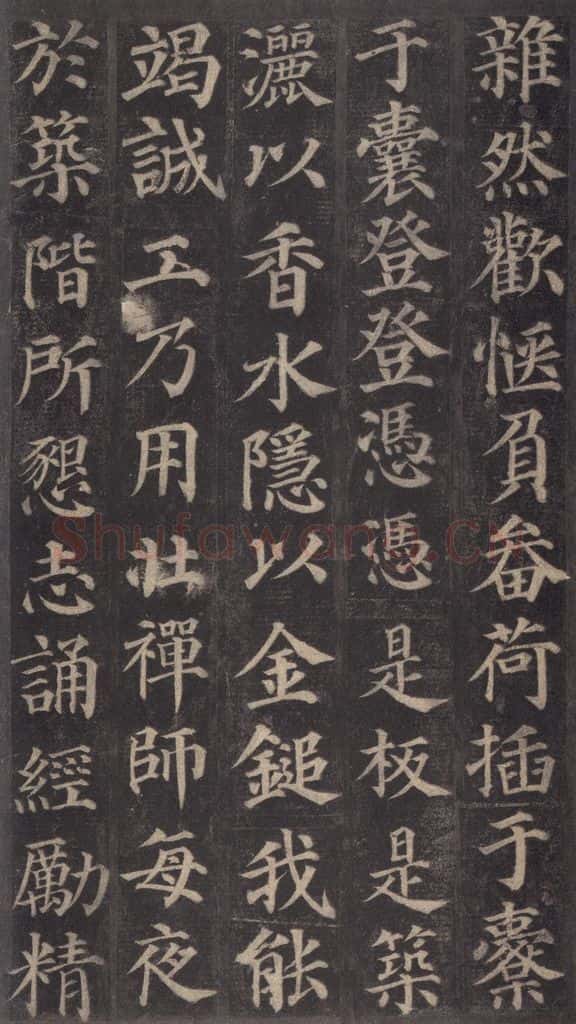 雜然歡惬負畚荷插于橐
于囊登登憑憑是板是築
灑以香水隱以金鎚我能
竭誠工乃用壯禪師每夜
於築階所懇志誦經勵精
Shufawang.CN